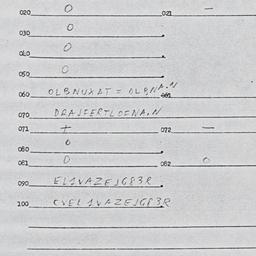 020 O 021 —
030 O
040 O
050 O
060 OLBNUXAT = OLBNA.N 061
070 DRAJFERTLOFNA.N
071 + 072 —
080 O
081 O 082 O
090 EL1VAZEJG83R
100 CVEL1VAZEJG83R